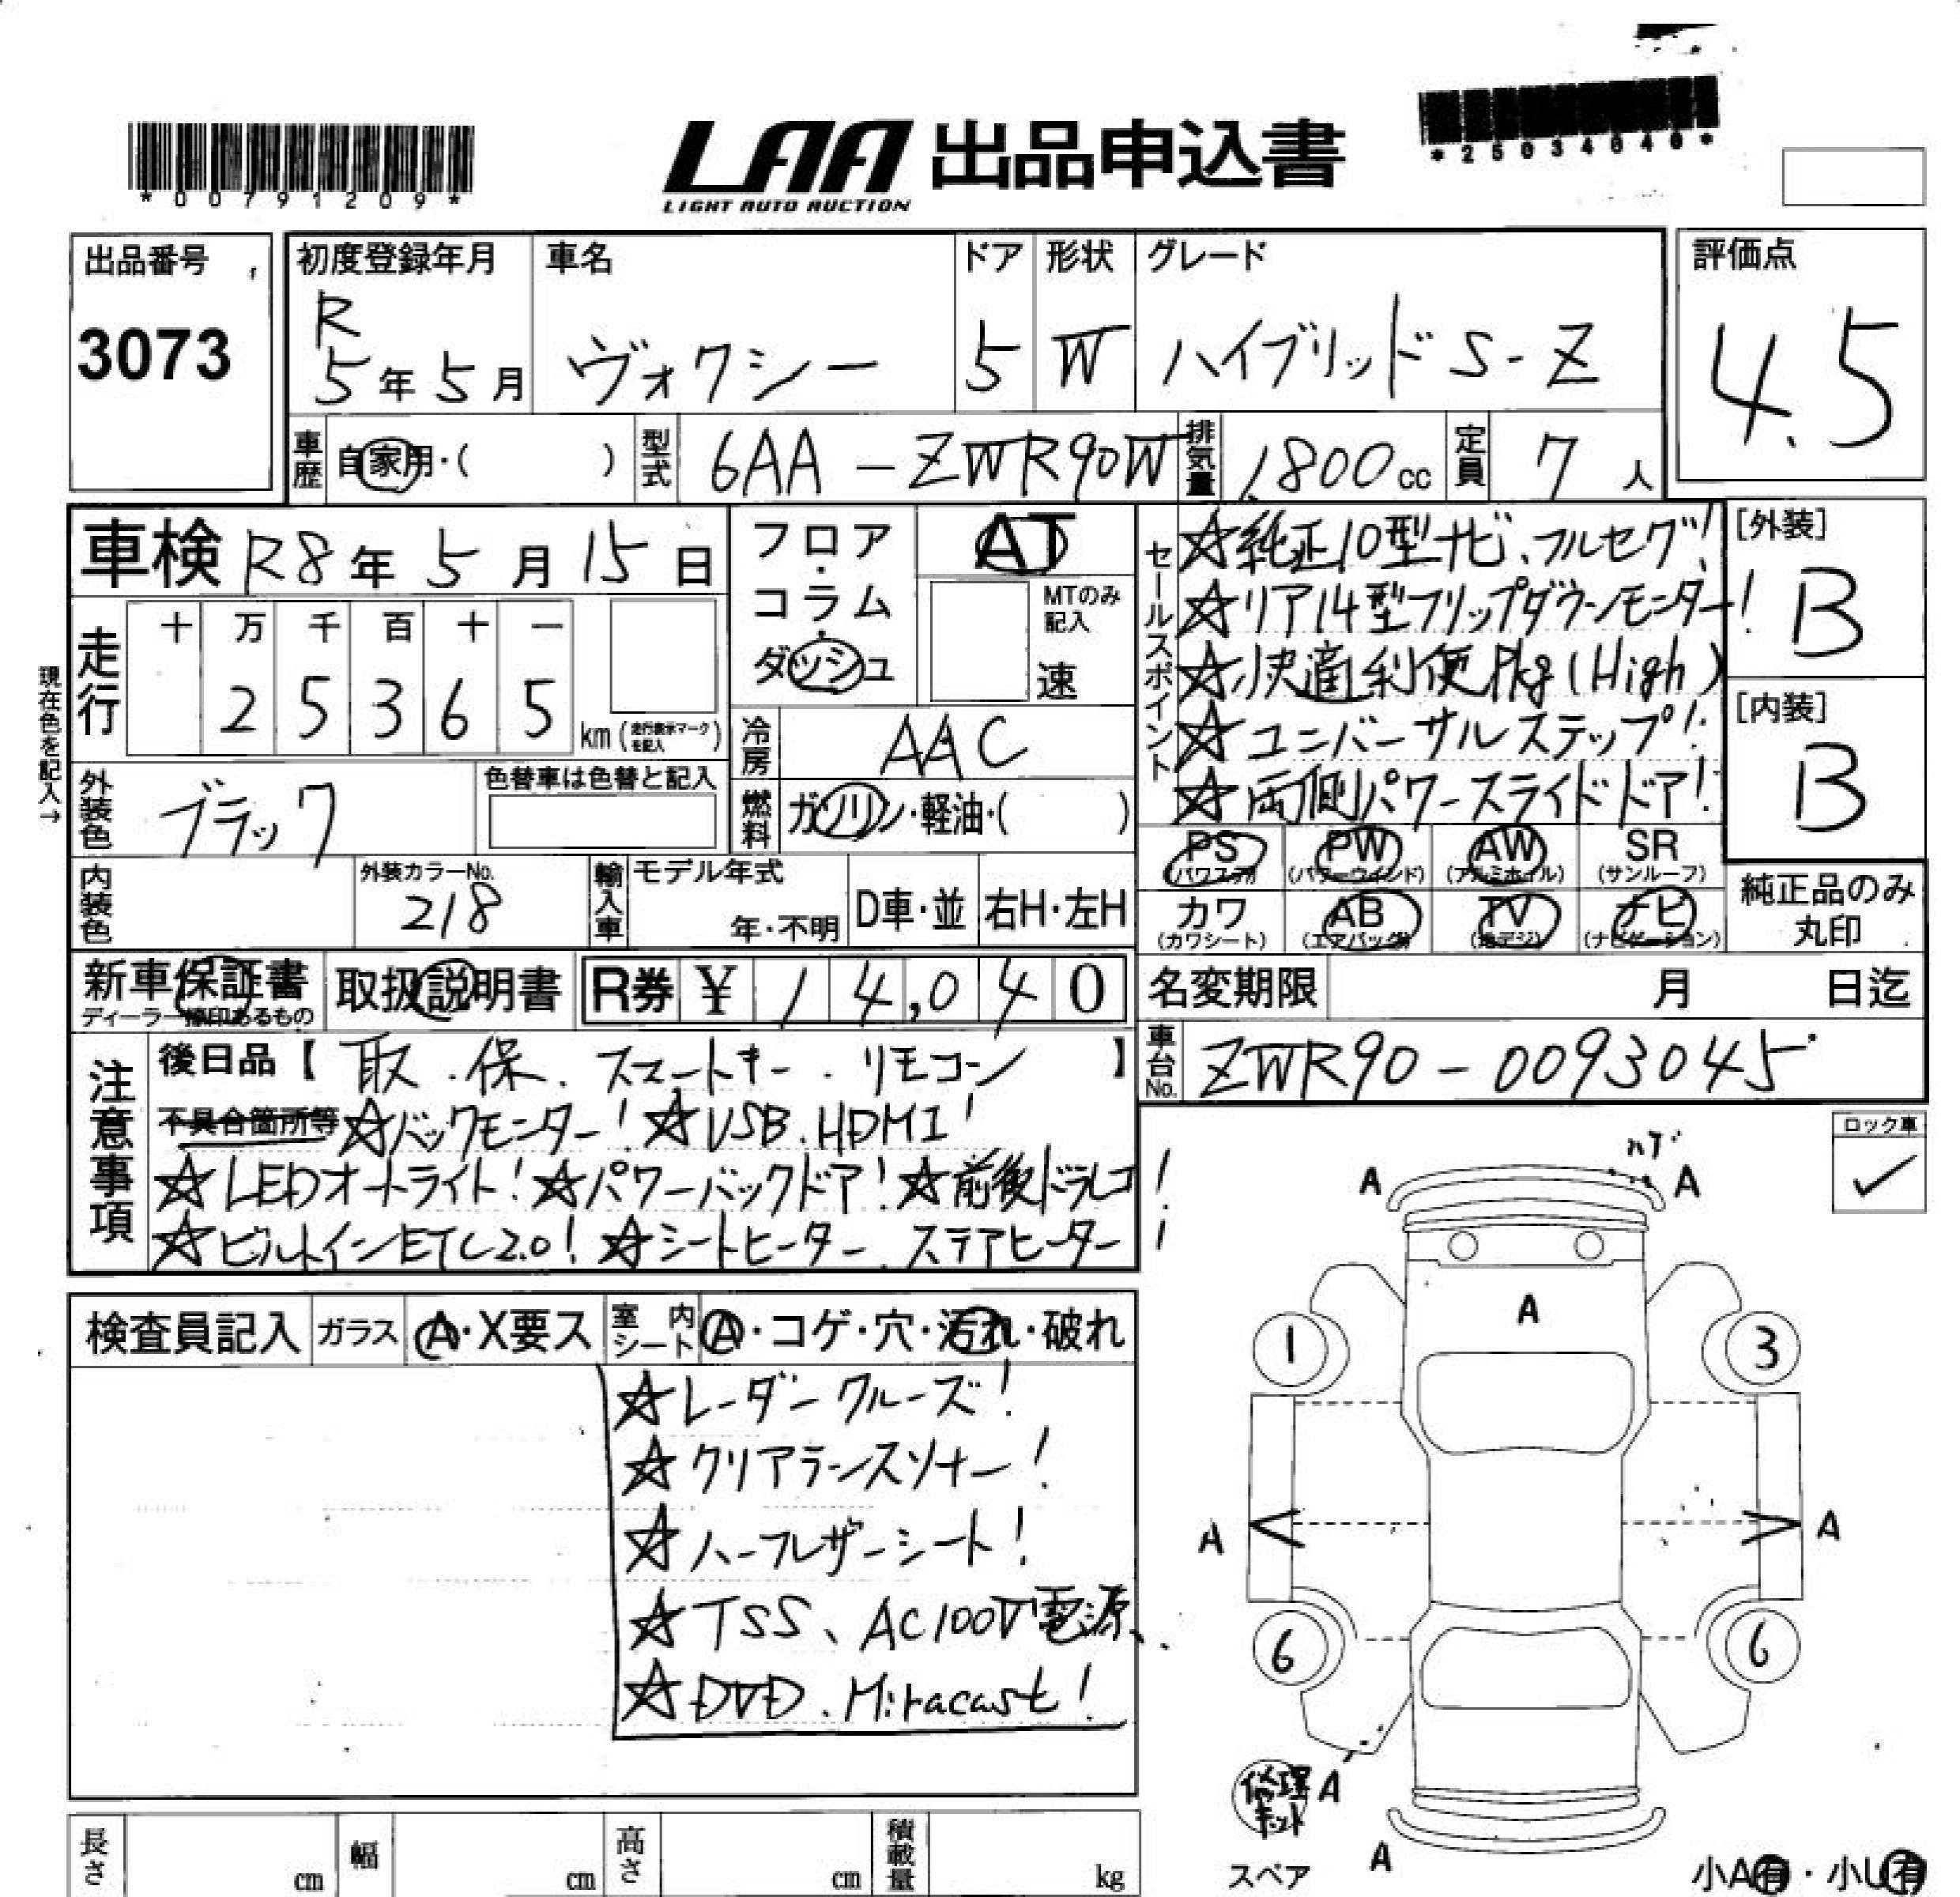 *00791209*
LAA 出品申込書
LIGHT AUTO AUCTION
*25034040*
出品番号
3073
初度登録年月
R
5年5月
車名
ヴォクシー
ドア
5
形状
W
グレード
ハイブリッドS-Z
評価点
4.5
車歴 自家用・( )
型式 6AA-ZWR90W
排気量 1,800cc
定員 7人
車検 R8年5月15日
現在色を記入→
走行
十 万 千 百 十 一
2 5 3 6 5 km(走行表示マークを記入)
外装色 ブラック
色替車は色替と記入
内装色
外装カラーNo.
218
フロア・コラム・ダッシュ
AT
MTのみ記入
速
冷房 AAC
燃料 ガソリン・軽油・( )
輸入車 モデル年式
年・不明
D車・並
右H・左H
セールスポイント
☆純正10型ナビ、フルセグ!
☆リア14型フリップダウンモニター!
☆快適利便Pkg(High)
☆ユニバーサルステップ!
☆両側パワースライドドア!
[外装]
B
[内装]
B
PS (パワステ)
PW (パワーウインド)
AW (アルミホイル)
SR (サンルーフ)
カワ (カワシート)
AB (エアバッグ)
TV (地デジ)
ナビ (ナビゲーション)
純正品のみ
丸印
新車保証書
ディーラー捺印あるもの
取扱説明書
R券 ¥ 14,040
名変期限 月 日迄
車台No. ZWR90-0093045
注意事項
後日品【取.保.スマートキー.リモコン】
不具合箇所等 ☆バックモニター! ☆USB.HDMI!
☆LEDオートライト! ☆パワーバックドア! ☆前後ドラレコ!
☆ビルトインETC2.0! ☆シートヒーター、ステアヒーター!
ロック車
✓
検査員記入
ガラス A・X要ス
室内シート A・コゲ・穴・汚れ・破れ
☆レーダークルーズ!
☆クリアランスソナー!
☆ハーフレザーシート!
☆TSS、AC100V電源、
☆DVD.Miracast!
A
A
A
1
3
A
A
6
6
修理キット
A
スペア
A
小A有・小U有
長さ cm
幅 cm
高さ cm
積載量 kg